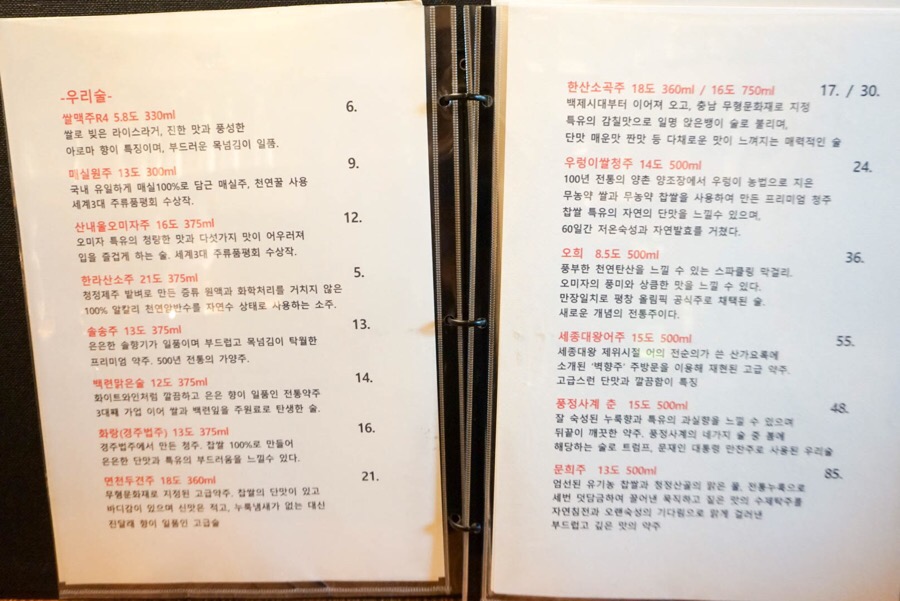 -우리술-
쌀맥주R4 5.8도 330ml 6.
쌀로 빚은 라이스라거, 진한 맛과 풍성한
아로마 향이 특징이며, 부드러운 목넘김이 일품.
매실원주 13도 300ml 9.
국내 유일하게 매실100%로 담근 매실주, 천연꿀 사용
세계3대 주류품평회 수상작.
산내울오미자주 16도 375ml 12.
오미자 특유의 청량한 맛과 다섯가지 맛이 어우러져
입을 즐겁게 하는 술. 세계3대 주류품평회 수상작.
한라산소주 21도 375ml 5.
청정제주 밭벼로 만든 증류 원액과 화학처리를 거치지 않은
100% 알칼리 천연암반수를 자연수 상태로 사용하는 소주.
솔송주 13도 375ml 13.
은은한 솔향기가 일품이며 부드럽고 목넘김이 탁월한
프리미엄 약주. 500년 전통의 가양주.
백련맑은술 12도 375ml 14.
화이트와인처럼 깔끔하고 은은 향이 일품인 전통약주
3대째 가업 이어 쌀과 백련잎을 주원료로 탄생한 술.
화랑(경주법주) 13도 375ml 16.
경주법주에서 만든 청주. 찹쌀 100%로 만들어
은은한 단맛과 특유의 부드러움을 느낄수 있다.
면천두견주 18도 360ml 21.
무형문화재로 지정된 고급약주. 찹쌀의 단맛이 있고
바디감이 있으며 신맛은 적고, 누룩냄새가 없는 대신
진달래 향이 일품인 고급술
한산소곡주 18도 360ml / 16도 750ml 17. / 30.
백제시대부터 이어져 오고, 충남 무형문화재로 지정
특유의 감칠맛으로 일명 앉은뱅이 술로 불리며,
단맛 매운맛 짠맛 등 다채로운 맛이 느껴지는 매력적인 술
우렁이쌀청주 14도 500ml 24.
100년 전통의 양촌 양조장에서 우렁이 농법으로 지은
무농약 쌀과 무농약 찹쌀을 사용하여 만든 프리미엄 청주
찹쌀 특유의 자연의 단맛을 느낄수 있으며,
60일간 저온숙성과 자연발효를 거쳤다.
오희 8.5도 500ml 36.
풍부한 천연탄산을 느낄 수 있는 스파클링 막걸리.
오미자의 풍미와 상큼한 맛을 느낄 수 있다.
만장일치로 평창 올림픽 공식주로 채택된 술.
새로운 개념의 전통주이다.
세종대왕어주 15도 500ml 55.
세종대왕 제위시절 어의 전순의가 쓴 산가요록에
소개된 '벽향주' 주방문을 이용해 재현된 고급 약주.
고급스런 단맛과 깔끔함이 특징
풍정사계 춘 15도 500ml 48.
잘 숙성된 누룩향과 특유의 과실향을 느낄 수 있으며
뒤끝이 깨끗한 약주. 풍정사계의 네가지 술 중 봄에
해당하는 술로 트럼프, 문재인 대통령 만찬주로 사용된 우리술
문희주 13도 500ml 85.
엄선된 유기농 찹쌀과 청정산골의 맑은 물, 전통누룩으로
세번 덧담금하여 끌어낸 묵직하고 짙은 맛의 수제탁주를
자연침전과 오랜숙성의 기다림으로 맑게 걸러낸
부드럽고 깊은 맛의 약주